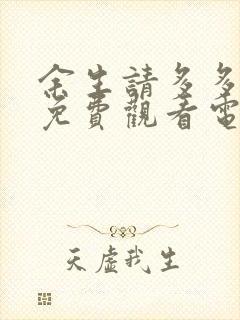 余生請多多
免費觀看電
天虛我生